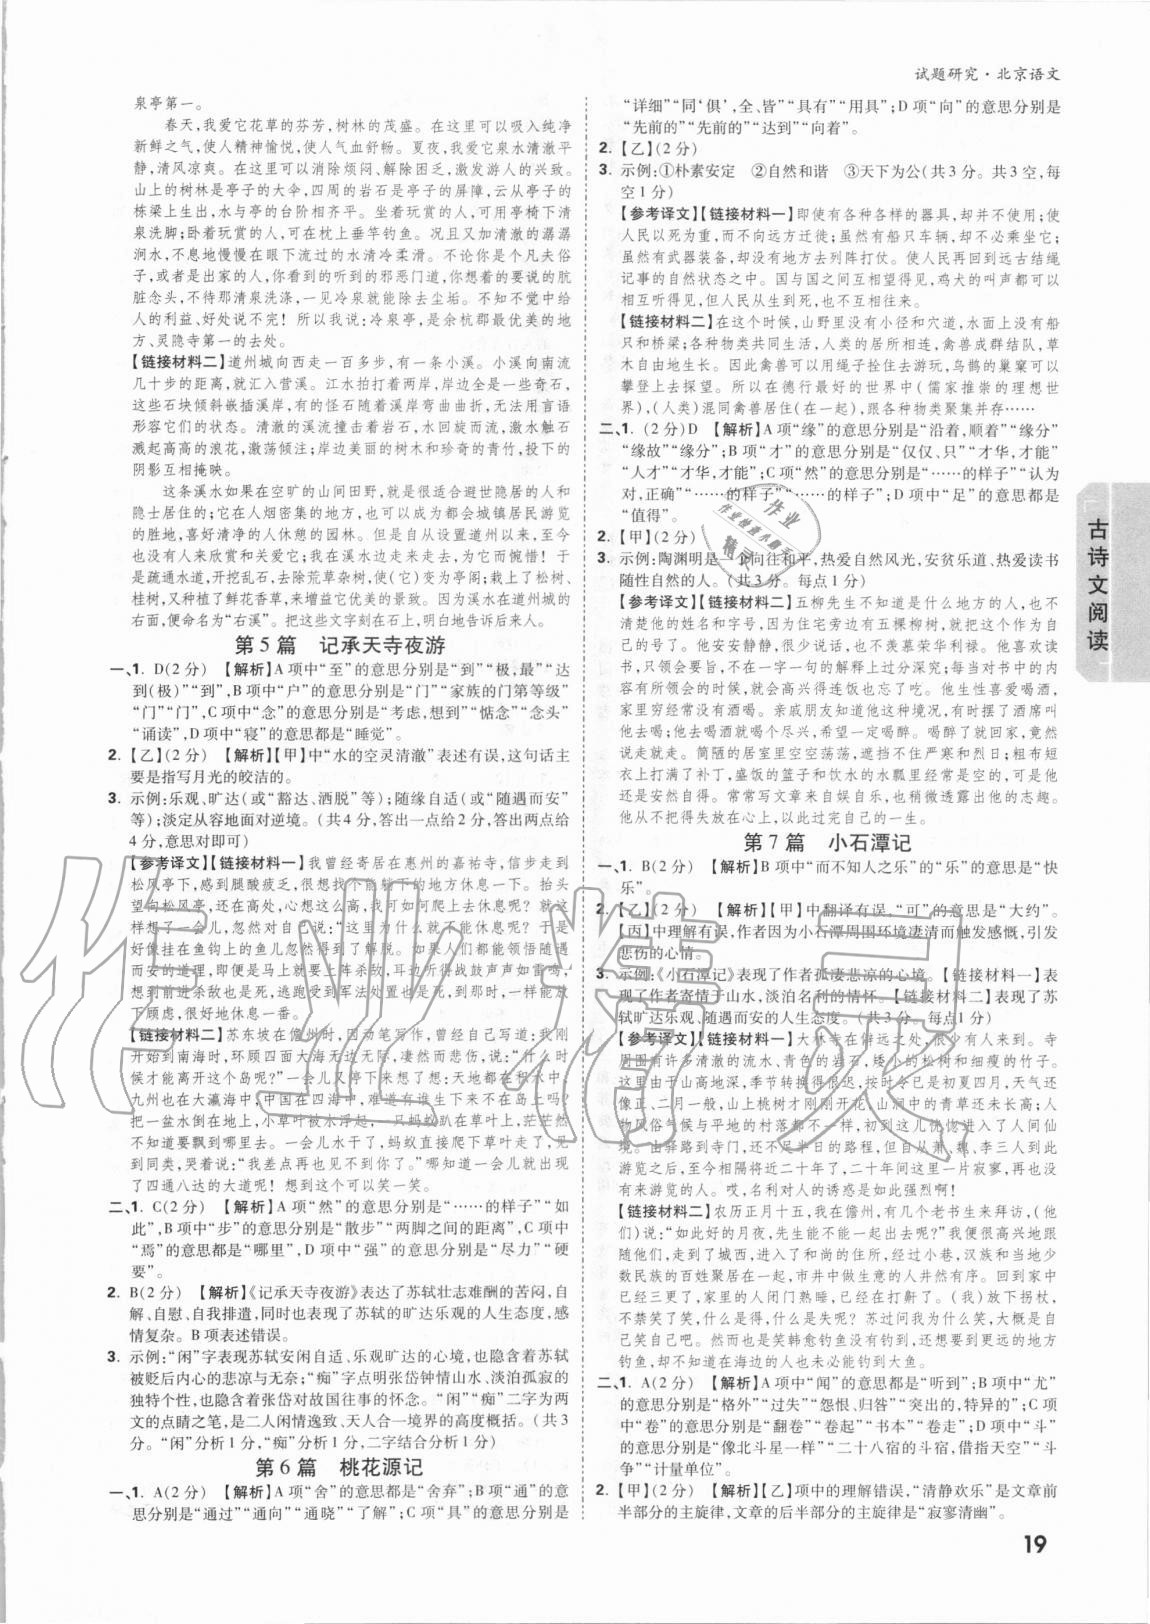 试题研究·北京语文
泉亭第一。
春天,我爱它花草的芬芳,树林的茂盛。在这里可以吸入纯净
新鲜之气,使人精神愉快,使人气血舒畅。夏夜,我爱它泉水清澈平
静,清风凉爽。在这里可以消除烦闷、解除困乏,激发游人的兴致。
山上的树林是亭子的大伞,四周的岩石是亭子的屏障,云从亭子的
栋梁上生出,水与亭的台阶相齐平。坐着玩赏的人,可用亭椅下清
泉洗脚;卧着玩赏的人,可在枕上垂竿钓鱼。况且清澈的潺潺
涧水,不急地慢慢在眼下流过水清冷柔滑。不论你是个凡夫俗
子,或者是出家的人,你看到的听到的邪恶门道,你想着的要说的肮
脏念头,不待那清泉洗涤,一见冷泉就能除去尘垢。不知不觉中给
人的利益、好处说不完!所以我说:冷泉亭,是余杭郡最优美的地
方、灵隐寺第一的去处。
【链接材料二】道州城向西走一百多步,有一条小溪。小溪向南流
几十步的距离,就汇入营溪。江水拍打着两岸,岸边全是一些奇石,
这些石块倾斜嵌插溪岸,有的怪石随岸弯曲曲折,无法用言语
形容它们的状态。清澈的溪流撞击着岩石水回旋着,激水触石
溅起高高的浪花,激荡倾注;岸边美丽的树木和珍奇的青竹,投下的
阴影互相掩映。
这条溪水如果在空旷的山间田野,就很适合避世隐居的人和
隐士居住的;它在人烟密集的地方,也可以成为城镇居民游览
的胜地,喜好清净的人休息的园林。但是自从设置道州以来,至今
没有人来欣赏和关心它;我在溪水边走来走去,为它而惋惜!于
是疏通水道,开挖乱石,去除荒草杂树,使它变为亭阁;栽上了松树、
桂树,又种植了鲜花香草,来增益它优美的景致。因为溪水在道州城的
右面,便命名为“右溪”。把这些文字刻在石上,明白地告诉后来人。
第5篇 记承天寺夜游
一、1. D(2分) 【解析】A项中“至”的意思分别是“到”“极,最”“达
到(极)”“到”,B项中“户”的意思分别是“门”“家族的门第等级”
“门”“门”,C项中“念”的意思分别是“考虑,想到”“惦念”“念头”
“诵读”,D项中“寝”的意思都是“睡觉”。
2.【乙】(2分) 【解析】【甲】中“水的空灵清澈”表述有误,这句话主
要是指写月光的皎洁的。
3. 示例:乐观、旷达(或“豁达、洒脱”等);随缘自适(或“随遇而安”
等);淡定从容地面对逆境。(共4分,答出一点给2分,答出两点给
4分,意思对即可)
【参考译文】【链接材料一】我曾经寄居在惠州的嘉祐寺,信步走到
松风亭下,感到腿酸疲乏,很想找个能躺下的地方休息一下。抬头
望向松风亭,还在高处,心想这么高,我如何爬上去休息呢?就这样
想了一会儿,忽然对自己说:“这里为什么就不能休息呢?”于是
好像挂在鱼钩上的鱼儿忽然得到了解脱。如果人们都能领悟随遇
而安的道理,即便是马上就要上阵杀敌,耳边听得战鼓声声如雷鸣,
想到前进杀敌也是死,逃跑受到军法处置也是死,到那时,一样能放
下顾虑,很好地休息一番。
【链接材料二】苏东坡在儋州时,因动笔写作,曾经自己说:“我刚
开始到南海时,环顾四面大海无边无际,凄然而悲伤,说:“什么时
候才能离开这个岛呢?”一会儿又停下来想想:天地都在积水中,
九州也在大瀛海中,中国在四海中,难道有生下来不在岛上吗?
把一盆水倒在地上,小草叶就被水浮起,一只蚂蚁趴在草叶上,茫茫
不知道要飘到哪去。一会儿水干了,蚂蚁直接爬下草叶走了,见
到同类,哭着说:“我差点再也见不到你了。哪知道一会儿就出现
了四通八达的大道呢!想到这个可以笑一笑。
二、1. C(2分) 【解析】A项“然”的意思分别是“……的样子”“如
此”,B项中“步”的意思分别是“散步”“两脚之间的距离”,C项中
“焉”的意思都是“哪里”,D项中“强”的意思分别是“尽力”“硬
要”。
2. B(2分) 【解析】《记承天寺夜游》表达了苏轼壮志难酬的苦闷,自
解、自慰、自我排遣,同时也表现了苏轼的旷达乐观的人生态度,感
情复杂。B项表述错误。
3. 示例:“闲”字表现苏轼安闲自适、乐观旷达的心境,也写出苏轼
被贬后内心的悲凉与无奈;“痴”字点明张岱钟情山水、淡泊孤寂的
独特个性,也蕴含着张岱对故国往事的怀念。“闲”“痴”二字为两
文的点睛之笔,是二人闲情逸致、天人合一境界的高度概括。(共3
分。“闲”分析1分,“痴”分析1分,二字结合分析1分)
第6篇 桃花源记
一、1. A(2分) 【解析】A项“舍”的意思都是“舍弃”;B项“通”的意
思分别是“通过”“通向”“通晓”“了解”;C项“具”的意思分别是
“详细”“同‘俱’,全、皆”“具有”“用具”;D项“向”的意思分别是
“先前的”“先前的”“达到”“向着”。
2.【乙】(2分)
3. 示例:①朴素安定 ②自然和谐 ③天下为公(共3分。共3空,每
空1分)
【参考译文】【链接材料一】即使有各种各样的器具,却并不使用;使
人民以死为重,而不向远方迁徙;虽然有船只车辆,却不必乘坐它;
虽然有武器装备,却没有地方去列阵打仗。使人民再回到远古结绳
记事的自然状态之中。国与国之间互相望得见,鸡犬的叫声都可以
互相听得见,但人民从生到死,也不互相往来。
【链接材料二】在这个时候,山野里没有小径和穴道,水面上没有船
只和桥梁;各种物类共同生活,人类的居所相连,禽兽成群结队,草
木自由地生长。因此禽兽可以用绳子拴住去游玩,鸟鹊的巢窠可以
攀登上去探望。所以在德行最好的世界中(儒家推崇的理想世
界),(人类)混同禽兽居住(在一起),跟各种物类聚集并存……
二、1. (2分)D 【解析】A项“缘”的意思分别是“沿着,顺着”“缘分”
“缘故”“缘分”;B项“才”的意思分别是“仅仅、只”“才华,才能”
“人才”“才华,才能”;C项“然”的意思分别是“……的样子”“认为
对,正确”“……的样子”“……的样子”;D项中“足”的意思都是
“值得”。
2.【甲】(2分)
3. 示例:陶渊明是一个向往和平,热爱自然风光,安贫乐道、热爱读书
随性自然的人。(共3分。每点1分)
【参考译文】【链接材料二】五柳先生不知道是什么地方的人,也不
清楚他的姓名和字号,因为住宅旁边有五棵柳树,就以此为号。
他安安静静,很少说话,也不羡慕荣华利禄。他喜欢读书,
只求领会要旨不在一字一句的解释上过分深究;每当对书中的内容
有所领会的时候,就会高兴得连饭也忘了吃。他生性喜爱喝酒,
家里穷经常没有酒喝。亲戚朋友知道他这种境况,有时摆了酒席叫
他去喝;他去喝酒就喝个尽兴,希望一定喝醉;喝醉了就回家,竟然
说走就走。简陋的居室里空空荡荡,遮挡不住严寒和烈日;粗布短
衣上打满了补丁,盛饭的篮子和饮水的水瓢里经常是空的,可是他
还是安然自得。常常写文章来自娱自乐,也稍微透露出他的志趣。
他从不把得失放在心上,以此过完自己的一生。
第7篇 小石潭记
一、1. B(2分) 【解析】B项中“而不知人之乐”的“乐”的意思是“快
乐”。
2.【乙】(2分) 【解析】【甲】中翻译有误,“可”的意思是“大约”。
【丙】中理解有误,作者因为小石潭周围环境凄清而触发感慨,引发
悲伤的心情。
3. 示例:《小石潭记》表现了作者孤凄悲凉的心境。【链接材料一】表
现了作者寄情于山水,淡泊名利的情怀。【链接材料二】表现了苏
轼旷达乐观、随遇而安的人生态度。(共3分。每点1分)
【参考译文】【链接材料一】大林寺在偏远之处,很少有人来到。寺
周围有许多清澈的流水、青色的岩石、矮小的松树和细瘦的竹子。
这里由于山高地深,季节转换得很迟,按时令已是初夏四月,天气还
像正、二月一般,山上桃树才刚刚开花,山涧中的青草还未长高;人
物风俗气候与平地的村落都不一样。初到这儿恍惚进入了人间仙
境。由驿路到寺门,还不足半日的路程,但自从萧、魏、李三人到此
游览之后,至今相隔将近二十年,二十年间这里一片寂寥,再也没
有来游览的人。哎,名利对人的诱惑是如此强烈啊!
【链接材料二】农历正月十五,我在儋州,有几个老书生来拜访,(他
们)说:“如此好的月夜,先生能不能一起出去呢?”我很高兴地跟
随他们,走到了城西,进入了和尚的住所,经过小巷,汉族和当地
少数民族的百姓聚居在一起,市井中做生意的人井然有序。回到家中
已经三更了,家里的人闭门熟睡,已经在打鼾了。(我)放下拐杖,
不禁笑了笑,什么是得,什么是失呢?苏过问我为什么笑,大概是自
己笑自己吧。然而也是笑韩愈钓鱼没有钓到,还想要到更远的地方
钓鱼,却不知道在海边的人也未必能钓到大鱼。
二、1. A(2分) 【解析】A项中“闻”的意思都是“听到”;B项中“尤”
的意思分别是“格外”“过失”“怨恨、归咎”“突出的,特异的”;C项
中“卷”的意思分别是“翻卷”“卷起”“书本”“卷走”;D项中“斗”
的意思分别是“像北斗星一样”“二十八宿的斗宿,借指天空”“斗
争”“计量单位”。
2.【甲】(2分) 【解析】【乙】项中的理解错误,“清静欢乐”是文章前
半部分的主旋律,文章的后半部分的主旋律是“寂寥清幽”。
古诗文阅读
作业精灵
19